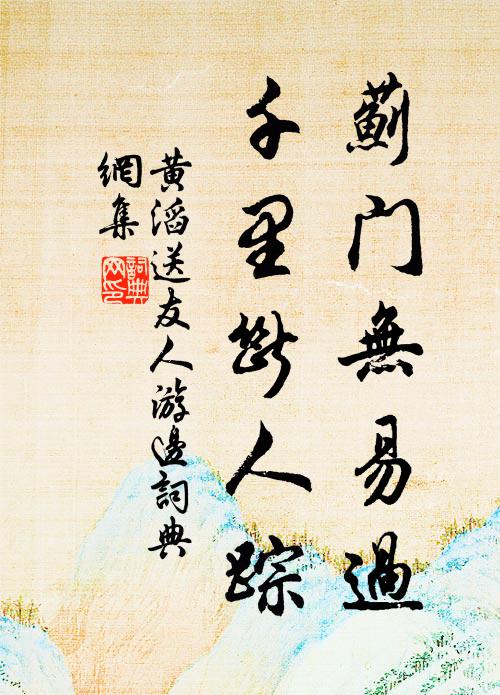 薊門無易過
千里斷人踪
黃滔送友人游邊詞典
網集
詞典
网印